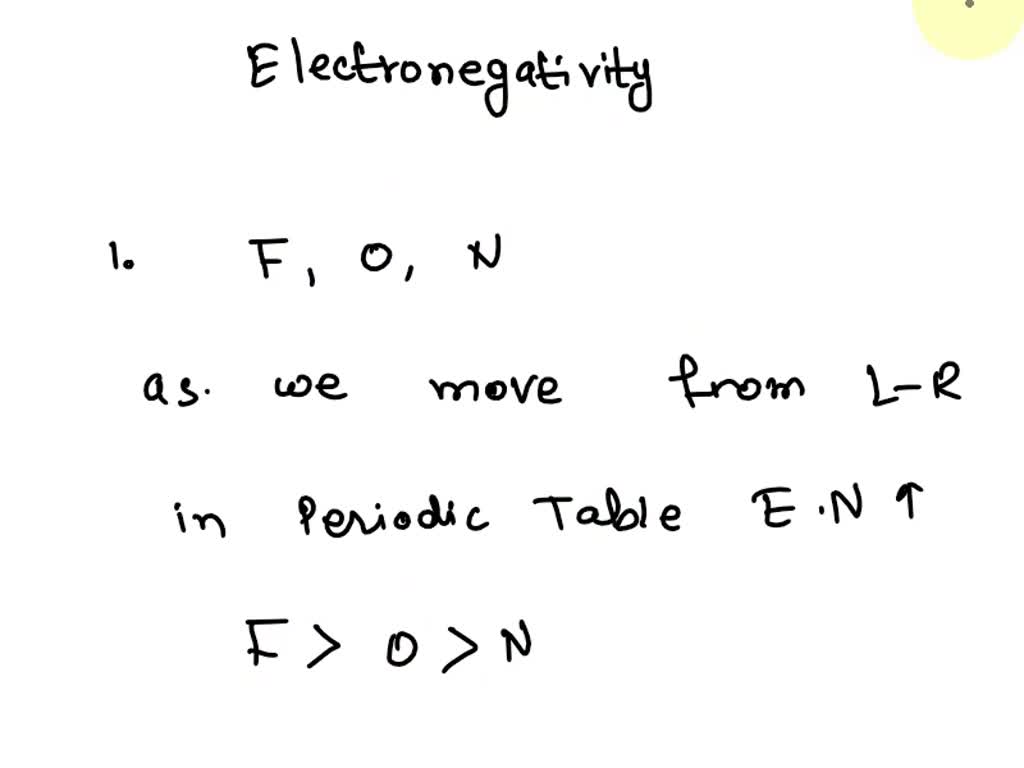 Electronegativity
1. F, O, N
as. we move from L-R
in Periodic Table E.N ↑
F > O > N